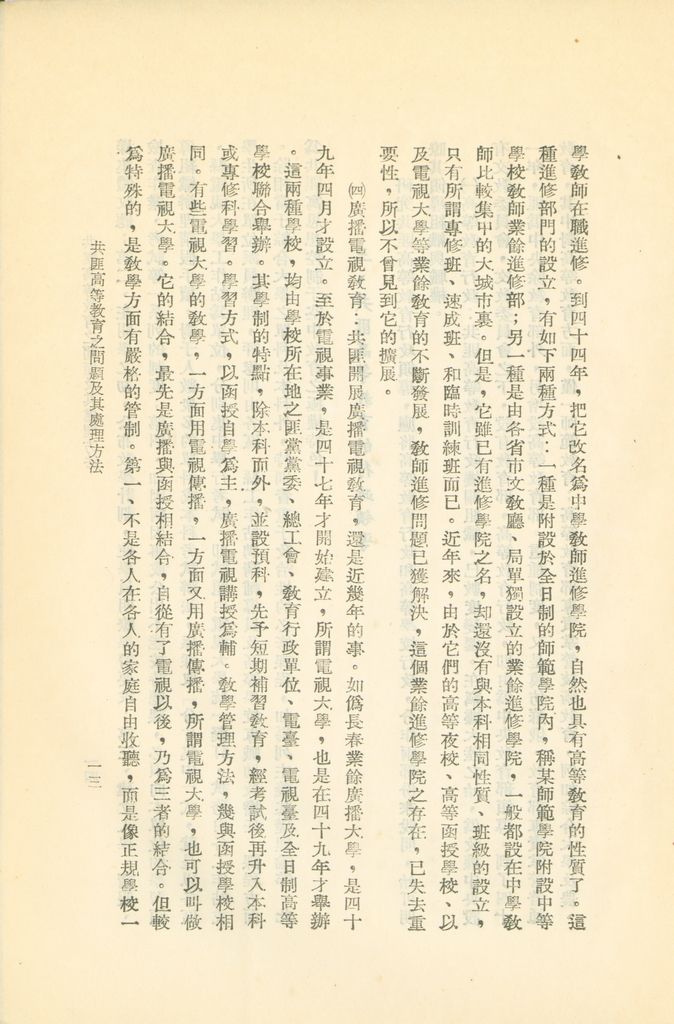 學敎師在職進修。到四十四年，把它改名爲中學敎師進修學院，自然也具有高等敎育的性質了。這
種進修部門的設立，有如下兩種方式：一種是附設於全日制的師範學院內，稱某師範學院附設中等
學校敎師業餘進修部；另一種是由各省市文敎廳、局單獨設立的業餘進修學院，一般都設在中學敎
師比較集中的大城市裏。但是，它雖已有進修學院之名，却還沒有與本科相同性質、班級的設立，
只有所謂專修班、速成班、和臨時訓練班而已。近年來，由於它們的高等夜校、高等函授學校、以
及電視大學等業餘敎育的不斷發展，敎師進修問題已獲解決，這個業餘進修學院之存在，已失去重
要性，所以不曾見到它的擴展。
㈣廣播電視敎育：共匪開展廣播電視敎育，還是近幾年的事。如僞長春業餘廣播大學，是四十
九年四月才設立。至於電視事業，是四十七年才開始建立，所謂電視大學，也是在四十九年才舉辦
。這兩種學校，均由學校所在地之匪黨黨委、總工會、敎育行政單位、電臺、電視臺及全日制高等
學校聯合舉辦。其學制的特點，除本科而外，並設預科，先予短期補習敎育，經考試後再升入本科
或專修科學習。學習方式，以函授自學爲主，廣播電視講授爲輔。敎學管理方法，幾與函授學校相
同。有些電視大學的敎學，一方面用電視傳播，一方面又用廣播傳播，所謂電視大學，也可以叫做
廣播電視大學。它的結合，最先是廣播與函授相結合，自從有了電視以後，乃爲三者的結合。但較
爲特殊的，是敎學方面有嚴格的管制。第一、不是各人在各人的家庭自由收聽，而是像正規學校一
共匪高等敎育之問題及其處理方法
一三